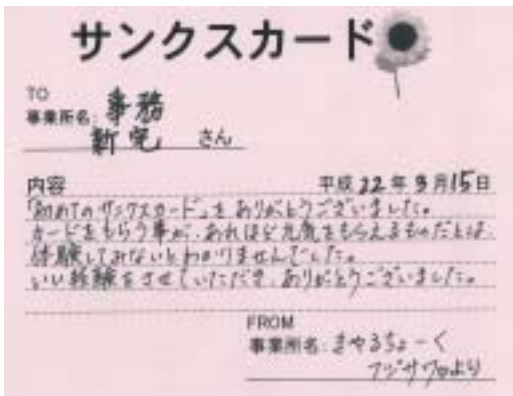 サンクスカード
TO
事業所名: 事務
新宅 さん
内容 平成22年9月15日
「初めてのサンクスカード」を ありがとうございました。
カードをもらう事が、あれほど元気をもらえるものだとは、
体験してみないとわかりませんでした。
いい経験をさせていただき、ありがとうございました。
FROM
事業所名: きやろちょーく
フジサワより